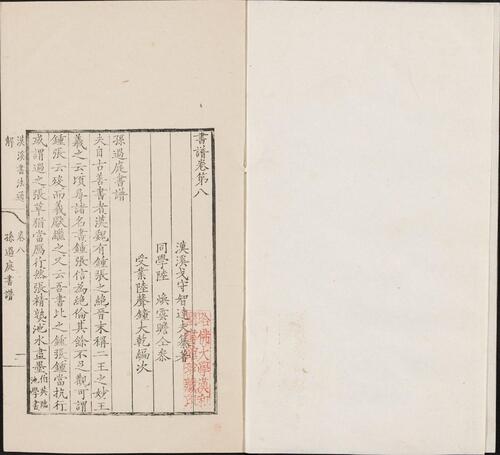 書譜卷第八
漢溪戈守智達夫纂著
同學陸　煥雲瞻仝叅
受業陸聲鐘大乾編次
孫過庭書譜
夫自古善書者漢魏有鍾張之絶晉末稱二王之妙王
羲之云頃尋諸名書鍾張信為絶倫其餘不足觀可謂
鍾張云殁而羲獻繼之又云吾書比之鍾張鍾當抗行
或謂過之張草猶當鴈行然張精熟池水盡墨伯英臨池學書
漢溪書法通解
卷八
孫過庭書譜
一
哈佛大學漢和
圖書館珍藏印